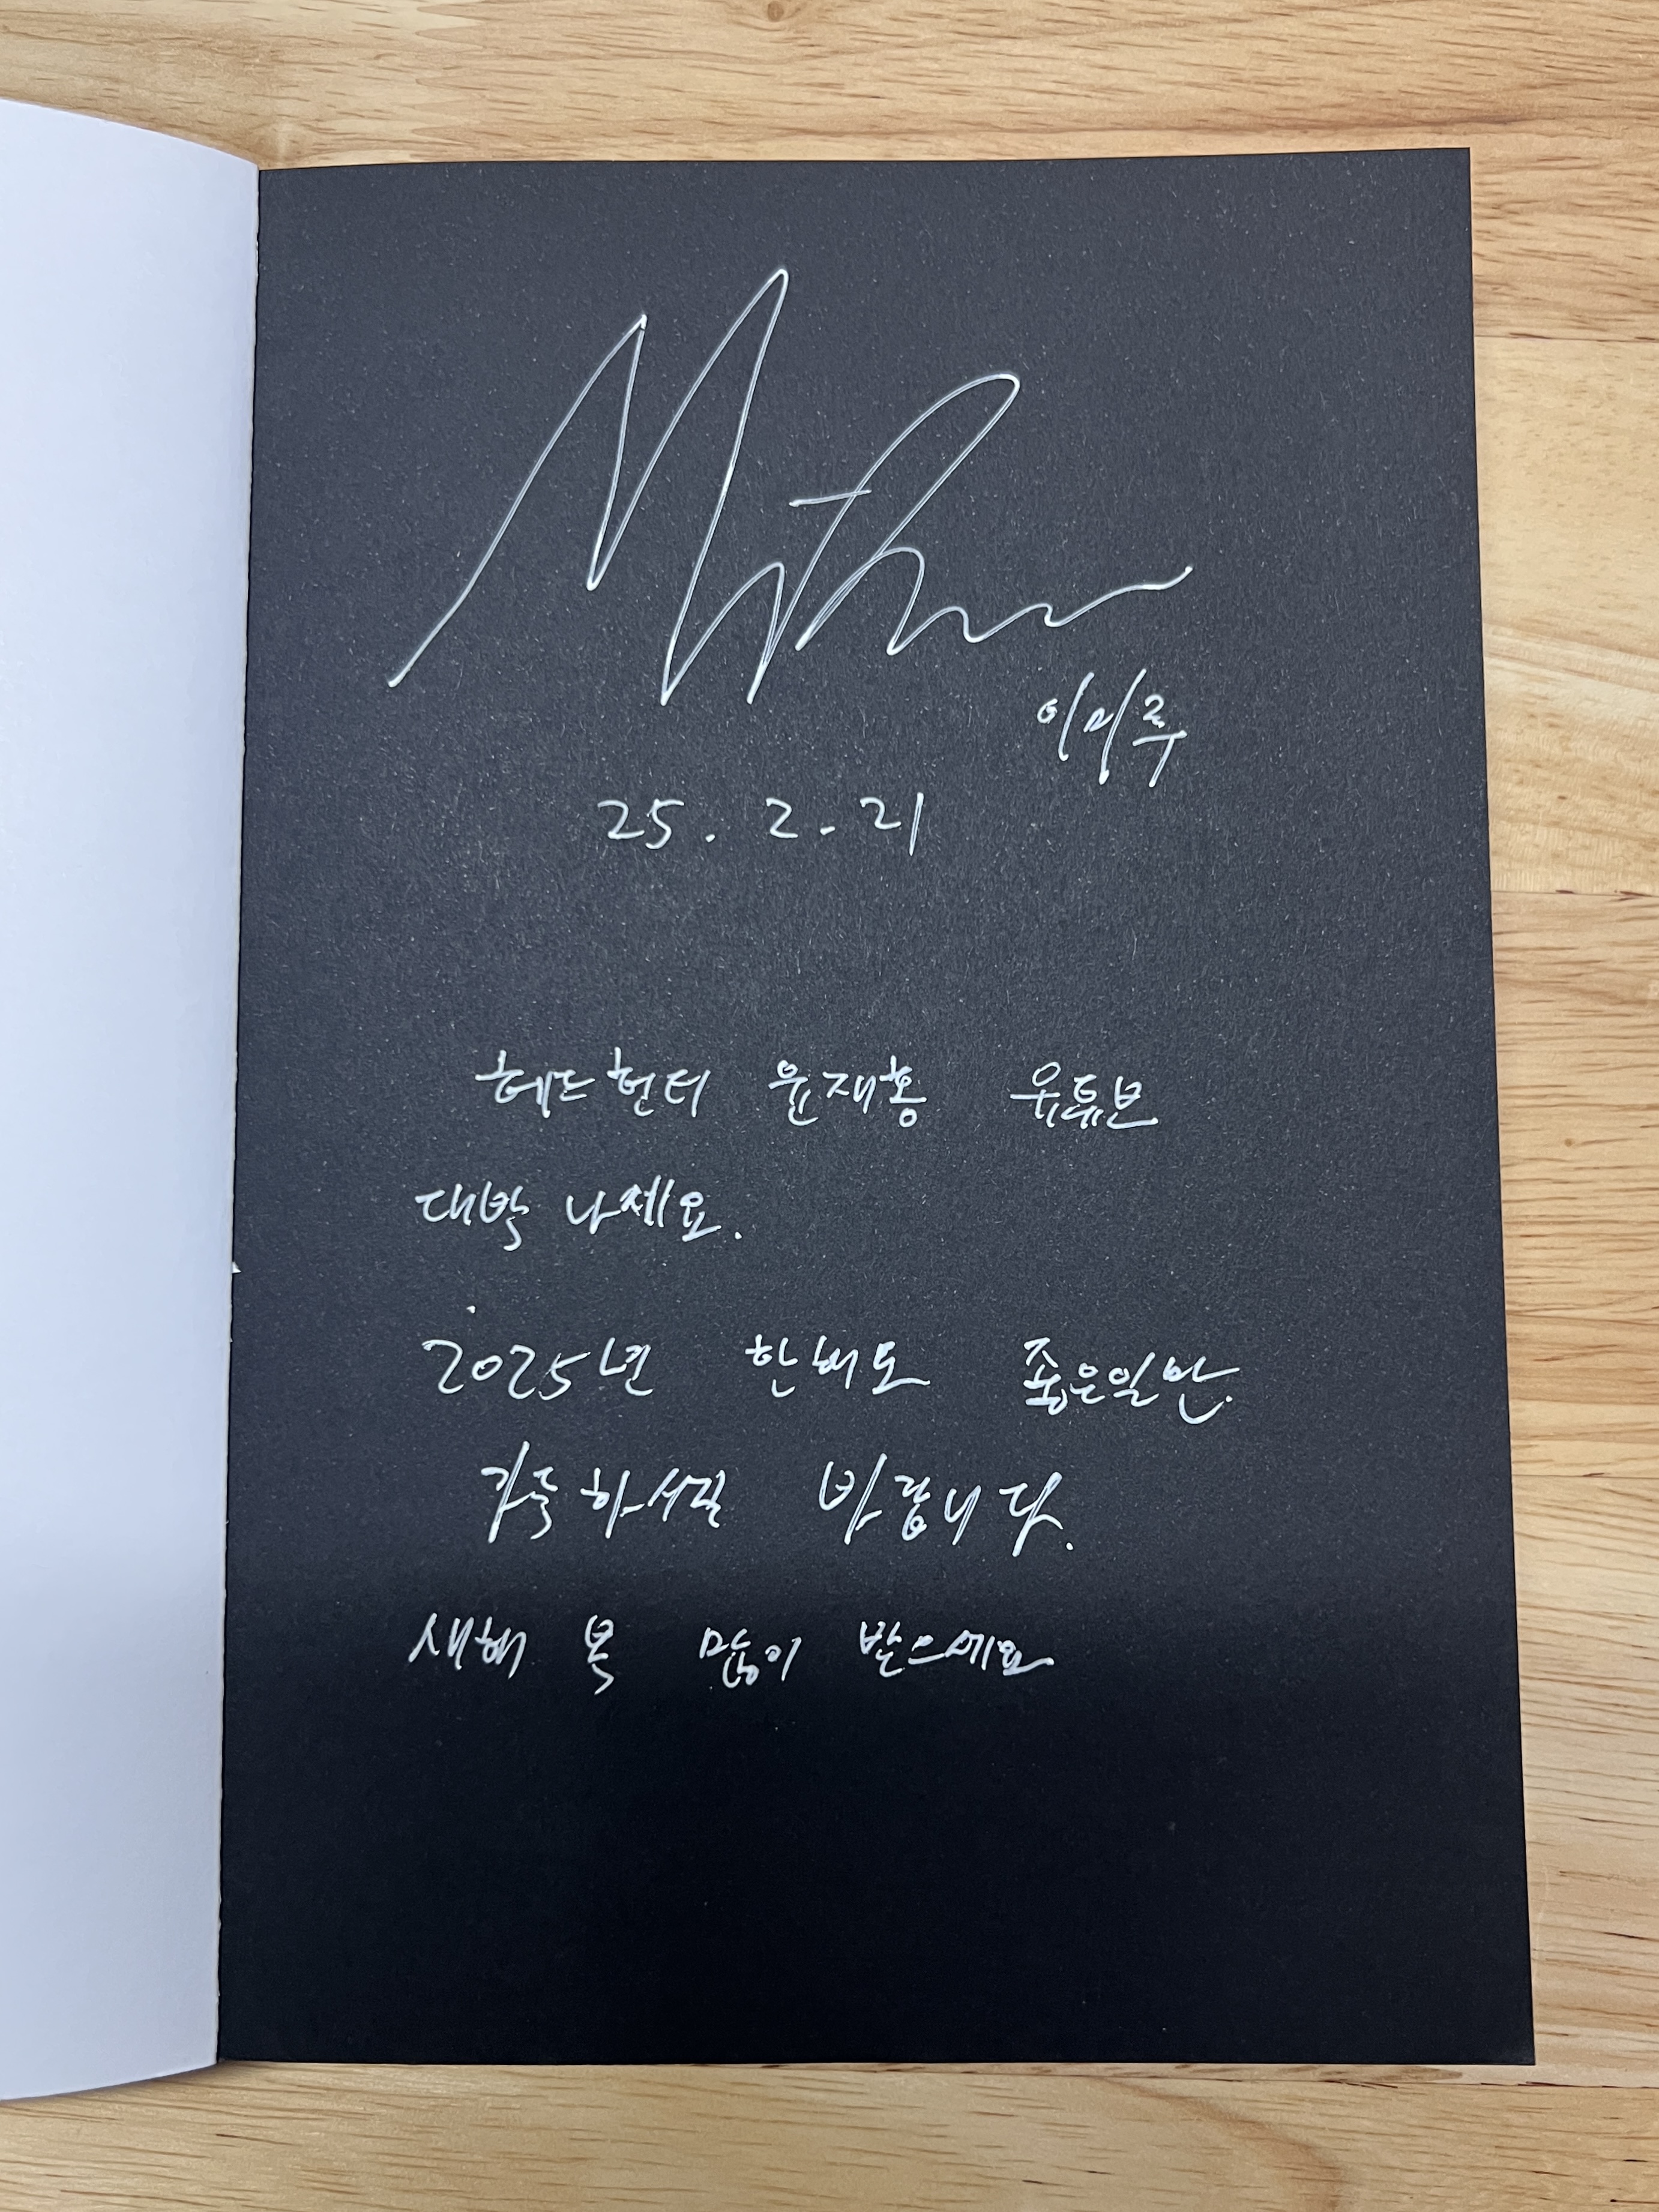 이미루
25. 2. 21
헤드헌터 윤재홍 유튜브
대박 나세요.
2025년 한해도 좋은일만
가득하시길 바랍니다.
새해 복 많이 받으세요